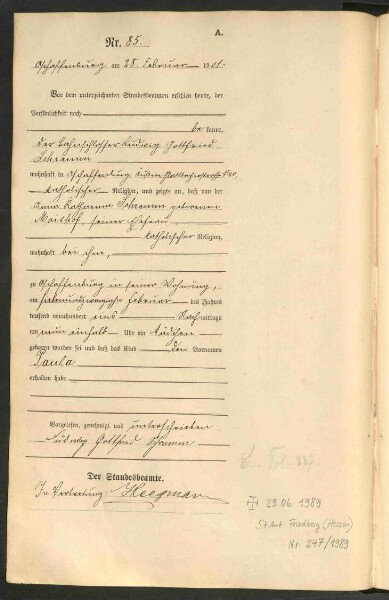 A.
Nr. 85.
Aschaffenburg am 28. Februar 1901.
Vor dem unterzeichneten Standesbeamten erschien heute, der
Persönlichkeit nach
be kannt,
der Bahnschlosser Ludwig Gottfried
Schramm
wohnhaft in Aschaffenburg,
katholischer Religion, und zeigte an, daß von der
Anna Katharina Schramm geborenen
seiner Ehefrau
katholischer Religion,
wohnhaft bei ihm,
zu Aschaffenburg in seiner Wohnung,
am Februar des Jahres
tausend neunhundert eins Nachmittags
um neun einhalb Uhr ein Mädchen
geboren worden sei und daß das Kind den Vornamen
Paula
erhalten habe.
Vorgelesen, genehmigt und unterschrieben
Ludwig Gottfried Schramm
Der Standesbeamte.
In Vertretung:
29.06.1989
St.Amt Friedberg (Hessen)
Nr. 247/1989